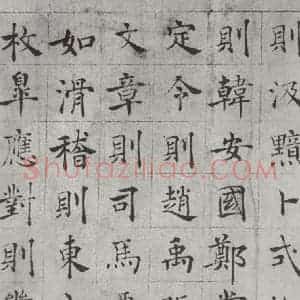 則汲黯卜式
則韓安國鄭
定令則趙禹
文章則司馬
如滑稽則東
枚皐應對則
Shufaziliao.com